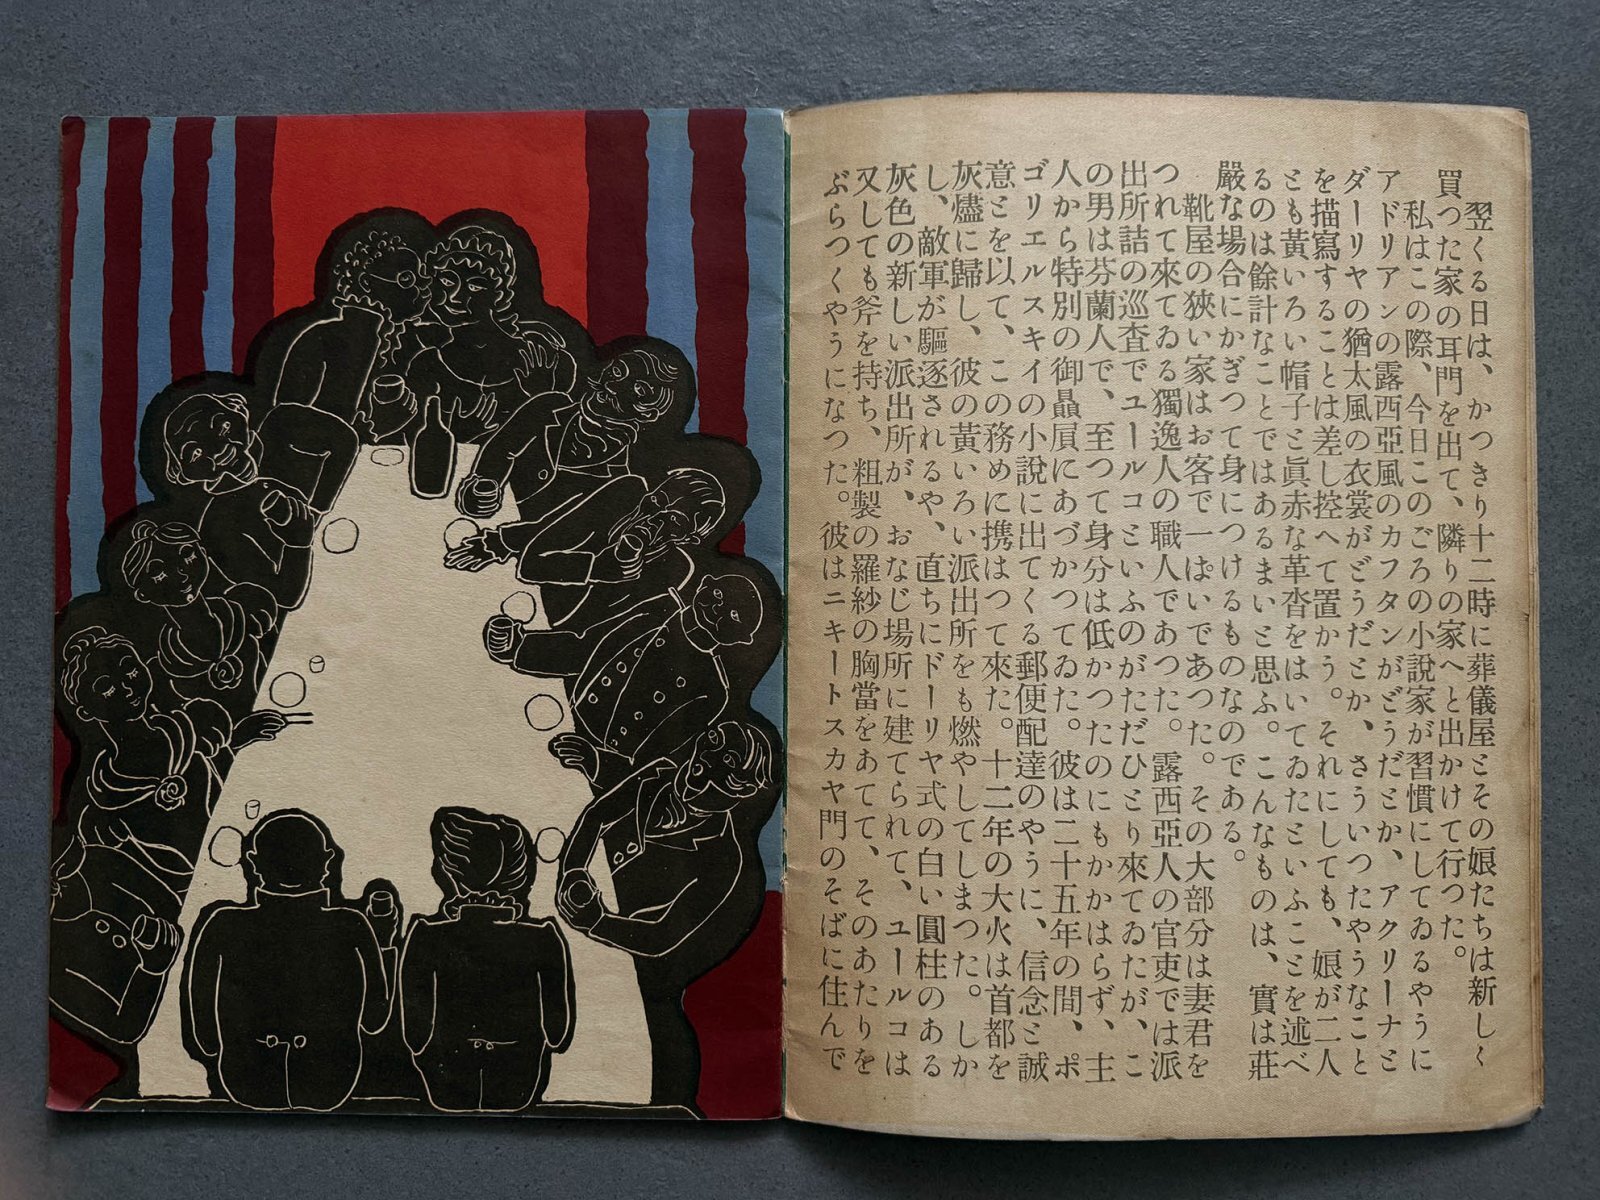 翌くる日は、かつきり十二時に葬儀屋とその娘たちは新しく
買つた家の耳門を出て、隣りの家へと出かけて行つた。
私はこの際、今日このごろの小説家が習慣にしてゐるやうに
アドリアンの露西亞風のカフタンがどうだとか、アクリーナと
ダーリヤの猶太風の衣裳がどうだとか、さういつたやうなこと
を描寫することは差し控へて置かう。それにしても、娘が二人
とも黃いろい帽子と眞赤な革沓をはいてゐたといふことを述べ
るのは餘計なことではあるまいと思ふ。こんなものは、實は莊
嚴な場合にかぎつて身につけるものなのである。
靴屋の狹い家はお客で一ぱいであつた。その大部分は妻君を
つれて來てゐる獨逸人の職人であつた。露西亞人の官吏では派
出所詰の巡査でユールコといふのがただひとり來てゐたが、こ
の男は芬蘭人で、至つて身分は低かつたのにもかかはらず、主
人から特別の御贔屓にあづかつてゐた。彼は二十五年の間、ポ
ゴリエルスキイの小説に出てくる郵便配達のやうに、信念と誠
意とを以て、この務めに携はつて來た。十二年の大火は首都を
灰燼に歸し、彼の黃いろい派出所をも燃やしてしまつた。しか
し、敵軍が驅逐されるや、直ちにドーリヤ式の白い圓柱のある
灰色の新しい派出所が、おなじ場所に建てられて、ユールコは
又しても斧を持ち、粗製の羅紗の胸當をあてて、そのあたりを
ぶらつくやうになつた。彼はニキートスカヤ門のそばに住んで